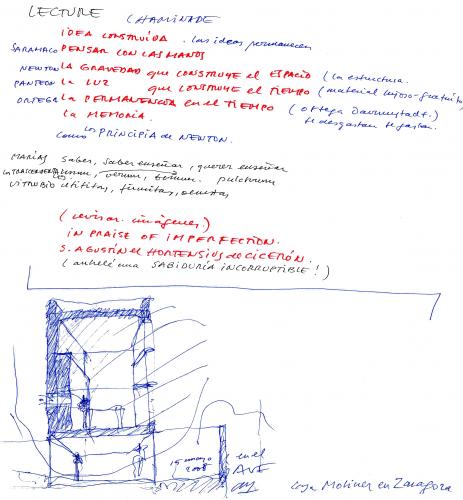 LECTURE CHAMINADE
IDEA CONSTRUIDA. las ideas permanecen
SARAMAGO PENSAR CON LAS MANOS
NEWTON LA GRAVEDAD que CONSTRUYE el ESPACIO (la estructura.
PANTEON LA LUZ que CONSTRUYE el TIEMPO (material lujoso-gratuito
ORTEGA LA PERMANENCIA en el TIEMPO (Ortega Darmstadt.)
LA MEMORIA. te desgastan te gastan.
como los PRINCIPIA de NEWTON.
MARÍAS saber, saber enseñar, querer enseñar
LA TRASCENDENTAL verum, bonum. pulchrum
VITRUBIO utilitas, firmitas, venustas
(revisar imágenes)
IN PRAISE OF IMPERFECTION.
S. AGUSTÍN el HORTENSIUS de CICERÓN.
(anhelé una SABIDURÍA INCORRUPTIBLE!)
15 mayo 2008 (en el AVE
Casa Moliner en Zaragoza